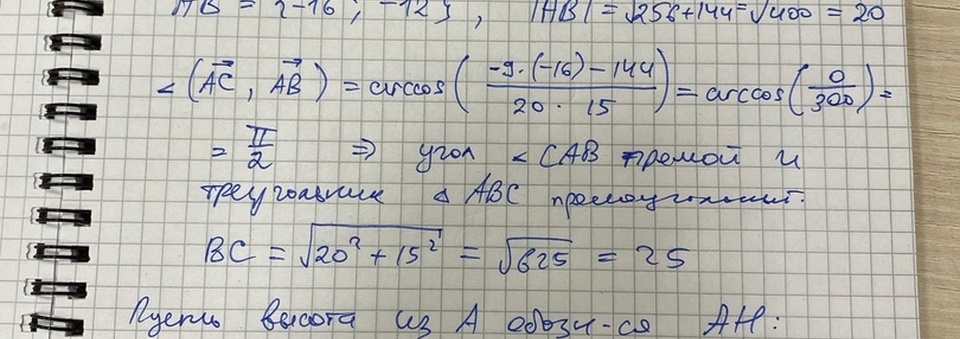 AB = {-16 ; -12} , |AB| = √256+144 = √400 = 20
∠ (AC, AB) = arccos ( -9·(-16) - 144 / 20 · 15 ) = arccos ( 0 / 300 ) =
= π/2 ⇒ угол ∠ CAB прямой и
треугольник △ ABC прямоугольный.
BC = √20² + 15² = √625 = 25
Пусть высота из A обозн-ся AH: